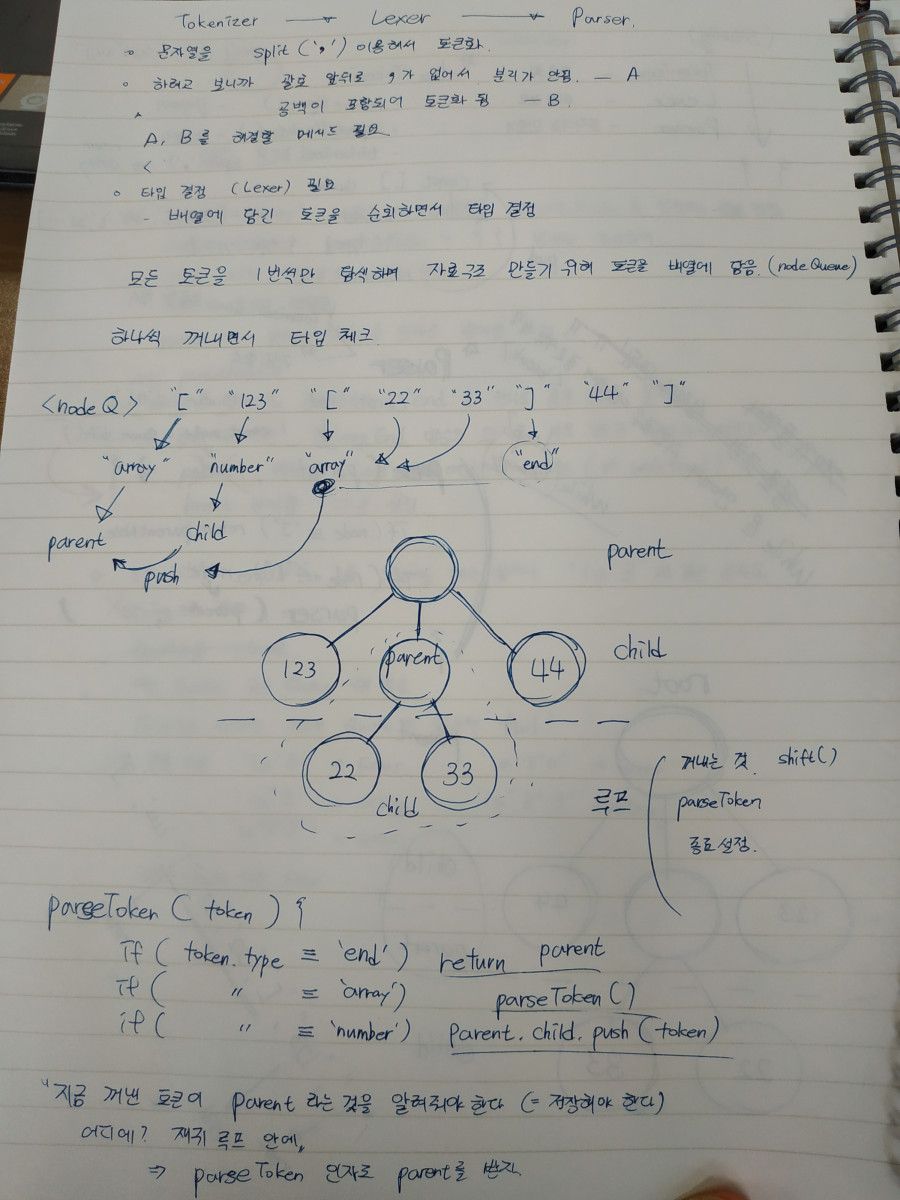 Tokenizer → Lexer → Parser.
◦ 문자열을 split(',') 이용해서 토큰화.
◦ 하려고 보니까 괄호 앞뒤로 ,가 없어서 분리가 안됨. — A
공백이 포함되어 토큰화 됨 — B.
A, B를 해결할 메서드 필요
<
◦ 타입 결정 (Lexer) 필요
- 배열에 담긴 토큰을 순회하면서 타입 결정
모든 토큰을 1번씩만 탐색하며 자료구조 만들기 위해 토큰을 배열에 담음. (node Queue)
하나씩 꺼내면서 타입 체크.
<node Q> "[" "123" "[" "22" "33" "]" "44" "]"
"array" "number" "array" "end"
parent child
push
parent
123 parent 44 child
22 33
child
루프
꺼내는 것. shift()
parseToken
종료설정.
parseToken ( token ) {
if ( token.type ≡ 'end') return parent
if ( 〃 ≡ 'array') parseToken ()
if ( 〃 ≡ 'number') Parent. child. push (token)
"지금 꺼낸 토큰이 parent 라는 것을 알려줘야 한다 (= 저장해야 한다)
어디에? 재귀 루프 안에,
⇒ parseToken 인자로 parent를 받자.